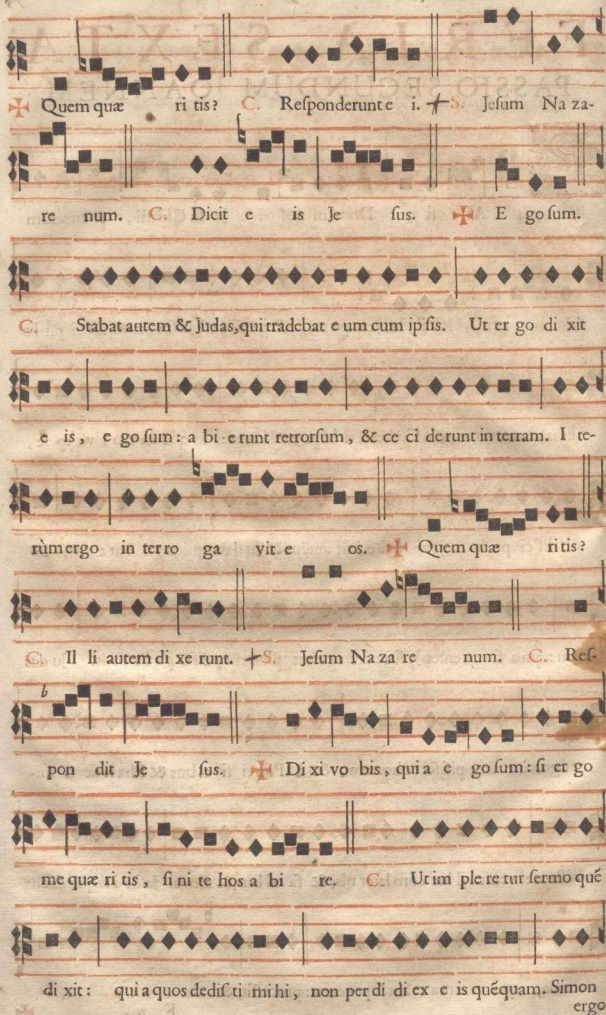 ✠ Quem quæ ri tis? C. Reſponderunt e i. ☩ S. Jeſum Na za-
re num. C. Dicit e is Je ſus. ✠ E go ſum.
C. Stabat autem & Judas, qui tradebat e um cum ip ſis. Ut er go di xit
e is, e go ſum: a bi e runt retrorſum, & ce ci de runt in terram. I te-
rùm ergo in ter ro ga vit e os. ✠ Quem quæ ri tis?
C. Il li autem di xe runt. ☩ S. Jeſum Na za re num. C. Reſ-
b
pon dit Je ſus. ✠ Di xi vo bis, qui a e go ſum: ſi er go
me quæ ri tis, ſi ni te hos a bi re. C. Ut im ple re tur ſermo quẽ
di xit: qui a quos dediſ ti mi hi, non per di di ex e is quẽquam. Simon
ergo